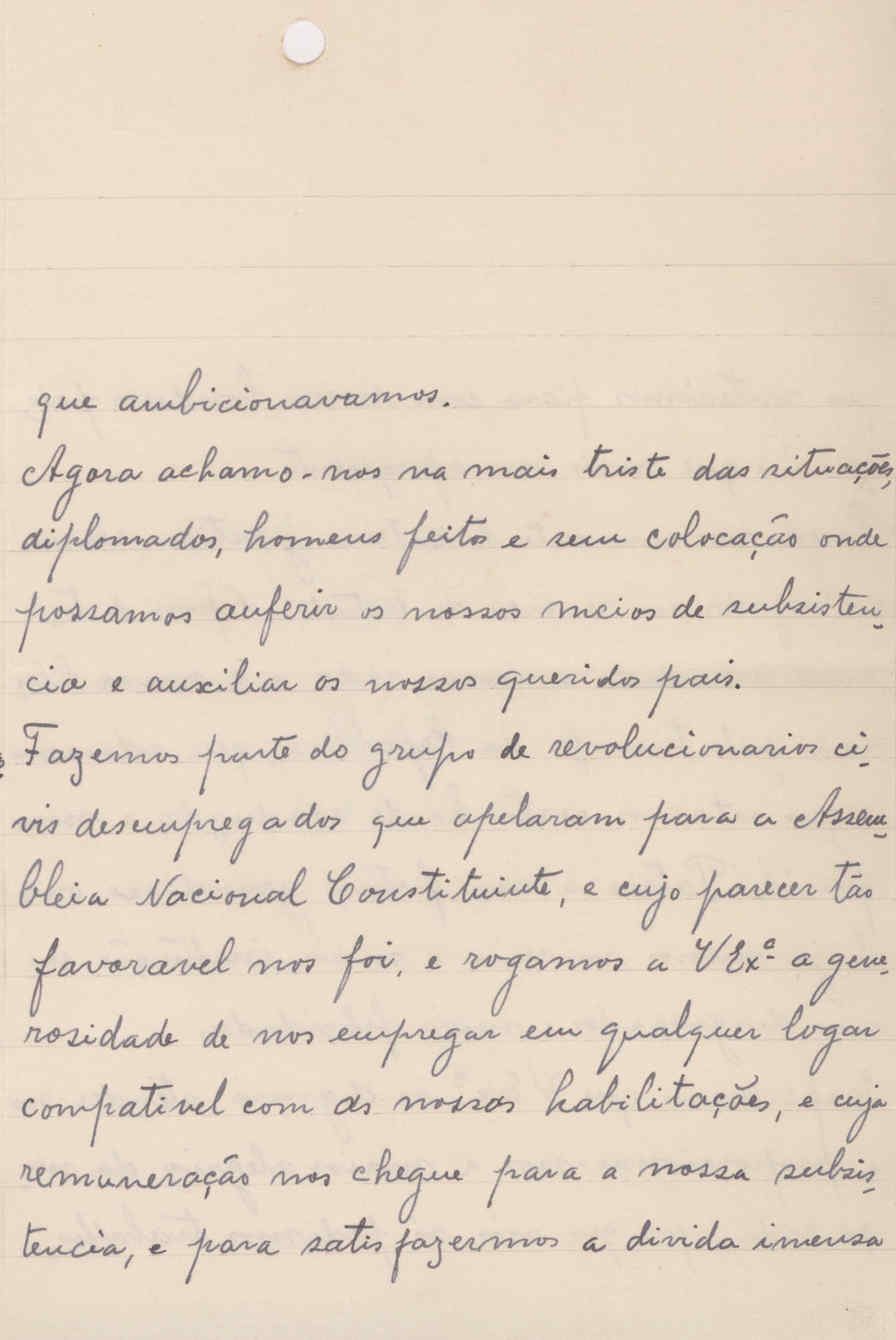 que ambicionavamos.
Agora achamo-nos na mais triste das situações,
diplomados, homens feitos e sem colocação onde
possamos auferir os nossos meios de subsisten-
cia e auxiliar os nossos queridos pais.
Fazemos parte do grupo de revolucionarios ci-
vis desempregados que apelaram para a Assem-
bleia Nacional Constituinte, e cujo parecer tão
favoravel nos foi, e rogamos a VExª a gene-
rosidade de nos empregar em qualquer logar
compativel com as nossas habilitações, e cuja
remuneração nos chegue para a nossa subsis-
tencia, e para satisfazermos a divida imensa